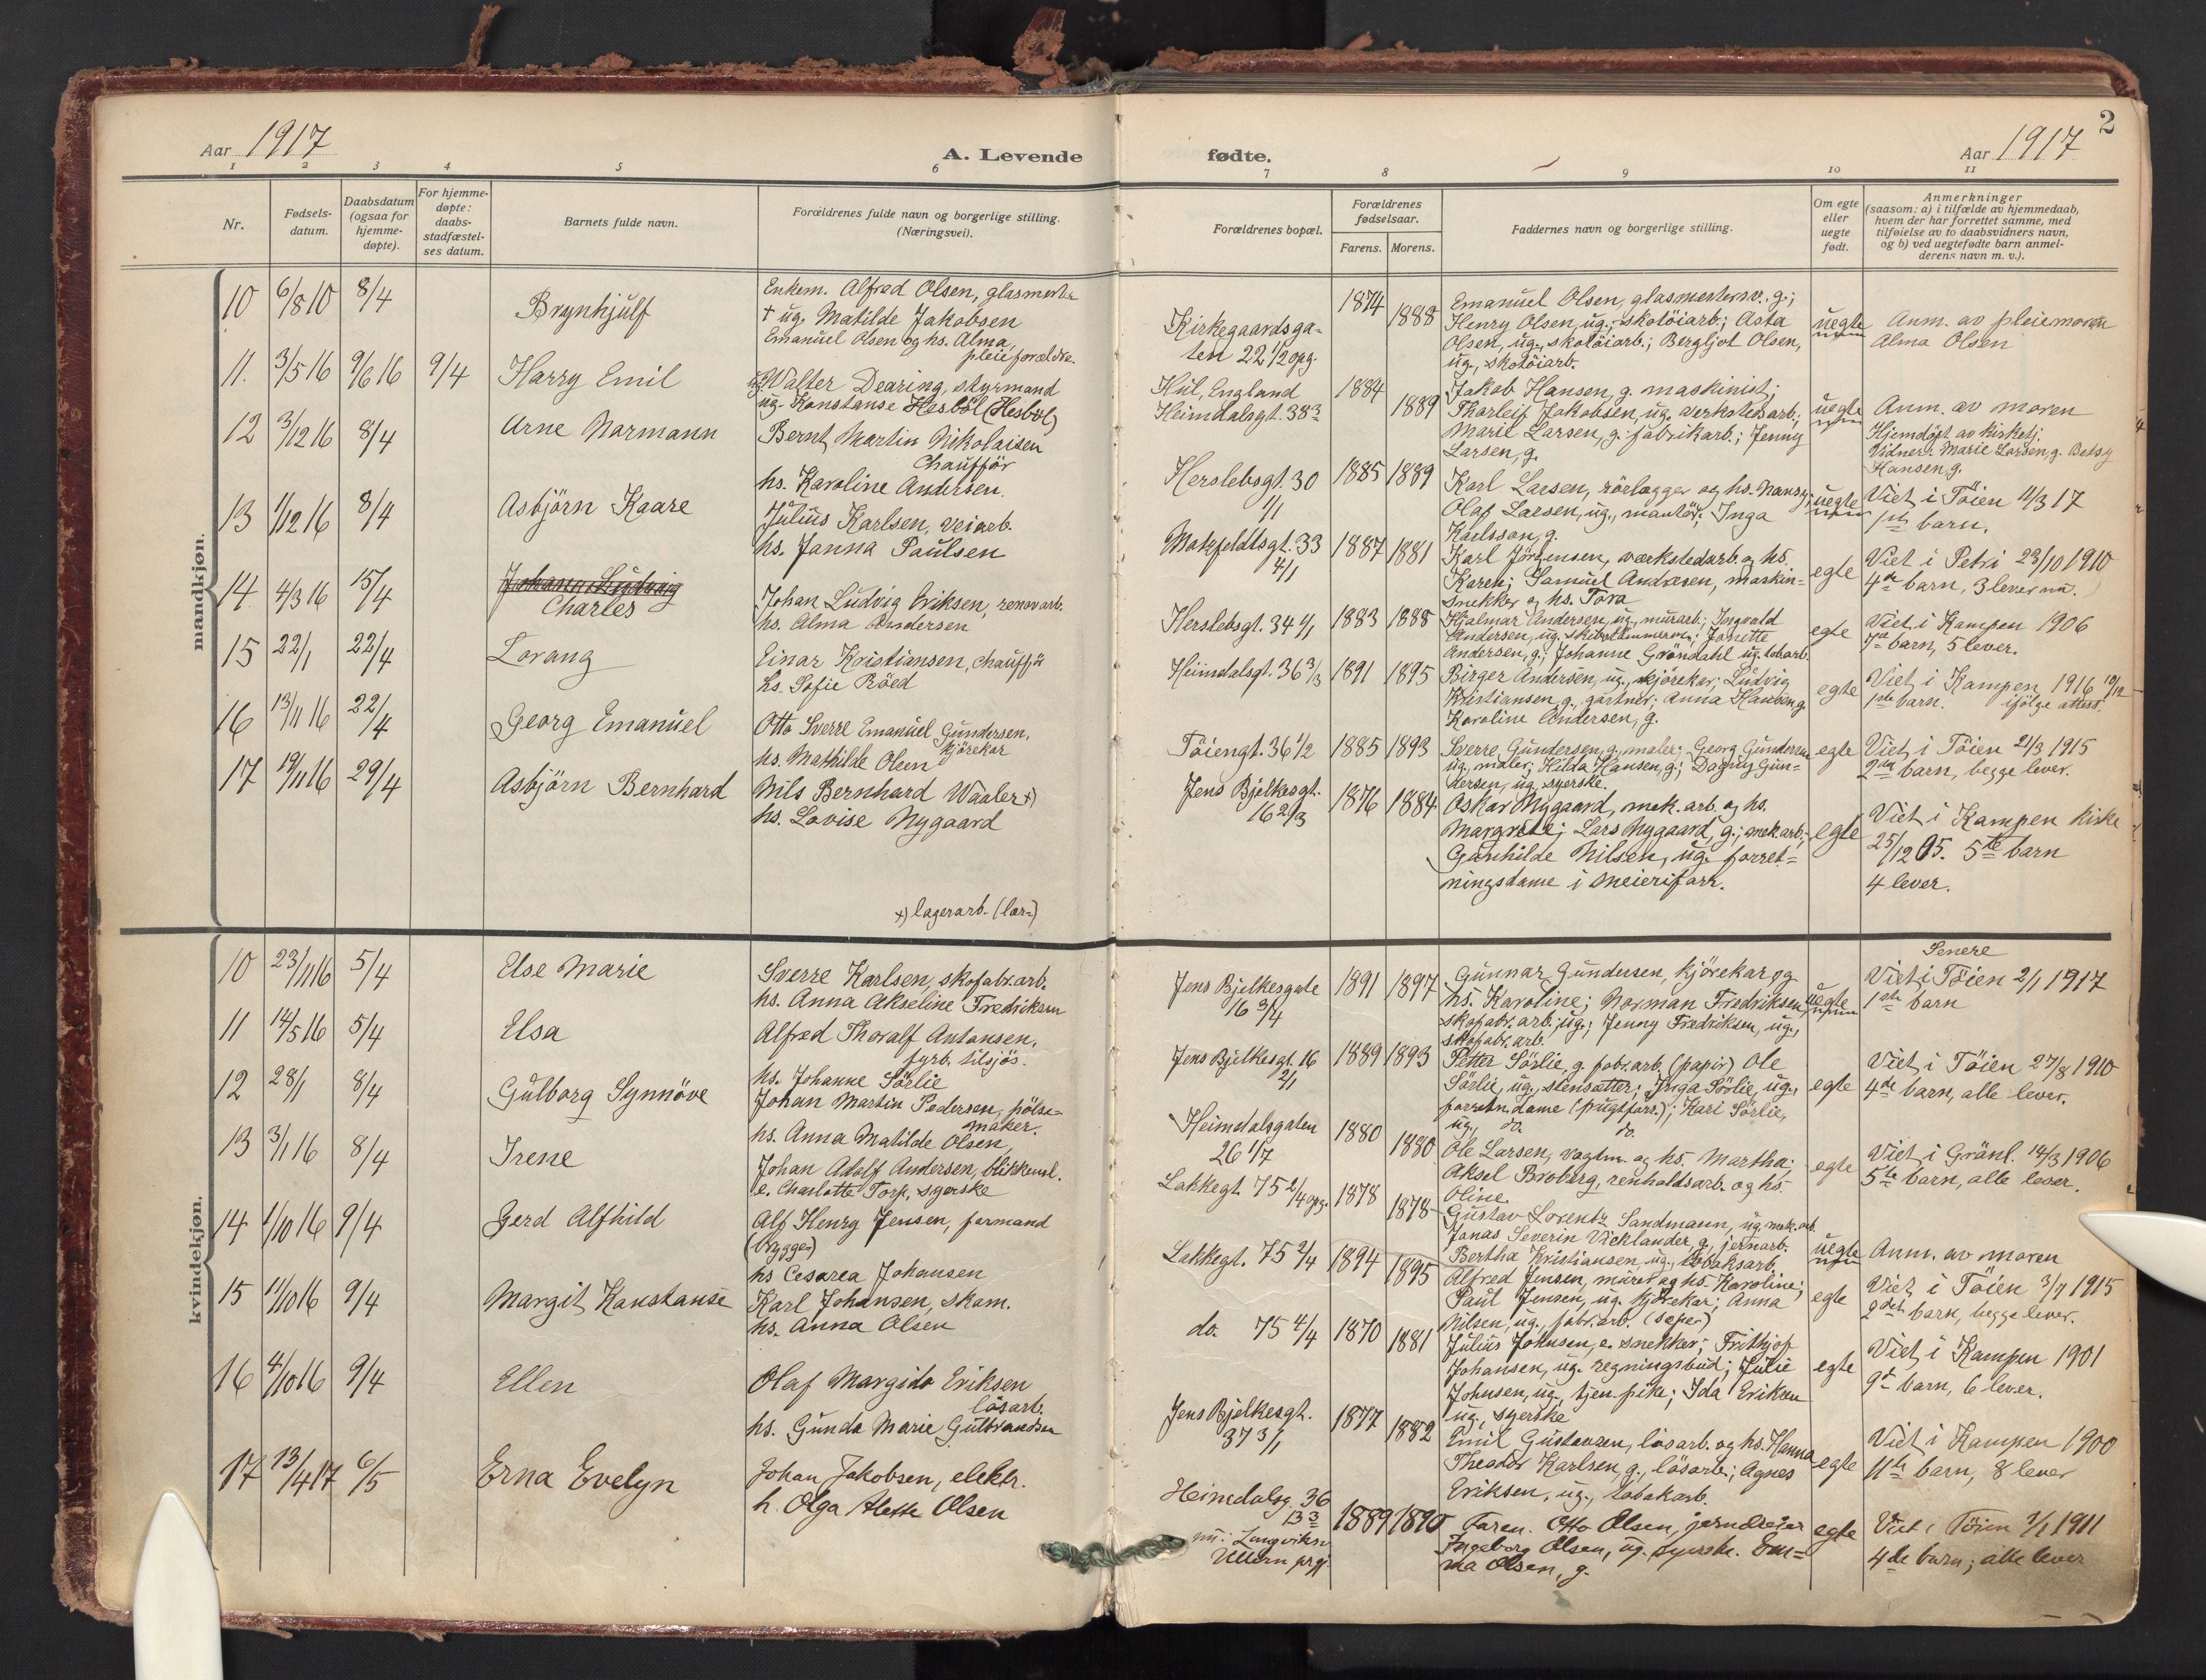 Aar 1917
A. Levende
1 2 3 4 5 6
Nr.
Fødsels-
datum.
Daabsdatum
(ogsaa for
hjemme-
døpte).
For hjemme-
døpte:
daabs-
stadfæstel-
ses datum.
Barnets fulde navn.
Forældrenes fulde navn og borgerlige stilling.
(Næringsvei).
mandkjøn.
10 6/8 10 8/4 Brynhjulf
Enkem. Alfred Olsen, glasmester
† ug. Matilde Jakobsen
Emanuel Olsen og hs. Alma,
pleieforældre.
11. 3/5 16 9/6 16 9/4 Harry Emil
Walter Dearing, styrmand
ug. Konstanse Hesböl (Hesbøl)
12 3/12 16 8/4 Arne Normann
Bernt Martin Nikolaisen
Chaufför
hs. Karoline Andersen.
13 1/12 16 8/4 Asbjörn Kaare
Julius Karlsen, veiarb.
hs. Janna Paulsen
14 4/3 16 15/4 Johann Ludvig
Charles
Johan Ludvig Eriksen, renovarb.
hs. Alma Andersen
15 22/1 22/4 Lorang
Einar Kristiansen, chaufför
hs. Sofie Röed
16 13/11 16 22/4 Georg Emanuel
Otto Sverre Emanuel Gundersen,
kjörekar
hs. Mathilde Olsen
17 19/11 16 29/4 Asbjörn Bernhard
Nils Bernhard Waaler x)
hs. Lovise Nygaard
x) lagerarb. (lær=)
kvindekjøn.
10 23/11 16 5/4 Else Marie
Sverre Karlsen, skofabr.arb.
hs. Anna Akseline Fredriksen
11 14/5 16 5/4 Elsa
Alfred Thoralf Antonsen,
fyrb. tilsjös.
hs. Johanne Sörlie
12 28/1 8/4 Gulborg Synnöve
Johan Martin Pedersen, pölse-
maker.
hs. Anna Matilde Olsen
13 3/1 16 8/4 Irene
Johan Adolf Andersen, blikkensl.
e. Charlotte Torp, syerske
14 1/10 16 9/4 Gerd Alfhild
Alf Henry Jensen, formand
(brygger)
hs Cesarea Johansen
15 11/10 16 9/4 Margit Konstanse
Karl Johansen, skom.
hs. Anna Olsen
16 4/10 16 9/4 Ellen
Olaf Margido Eriksen
lösarb.
hs. Gunda Marie Gulbrandsen
17 13/4 17 6/5 Erna Evelyn
Johan Jakobsen, elektr.
h. Olga Alette Olsen
2
fødte.
Aar 1917
7 8 9 10 11
Forældrenes bopæl.
Forældrenes
fødselsaar.
Farens. Morens.
Faddernes navn og borgerlige stilling.
Om egte
eller
uegte
født.
Anmerkninger
(saasom: a) i tilfælde av hjemmedaab,
hvem der har forrettet samme, med
tilføielse av to daabsvidners navn,
og b) ved uegtefødte barn anmel-
derens navn m. v.).
Kirkegaardsga-
ten 22 1/2 opg.
1874 1888
Emanuel Olsen, glasmestersv., g.;
Henry Olsen, ug., skotöiarb.; Asta
Olsen, ug., skotöiarb.; Bergljot Olsen,
ug., skotöiarb.
uegte
Anm. av pleiemoren
Alma Olsen
Hul, England
Heimdalsgt. 38 3
1884 1889
Jakob Hansen, g. maskinist;
Tharleif Jakobsen, ug. verkstedarb.;
Marie Larsen, g. fabrikarb.; Jenny
Larsen, g.
uegte
Anm. av moren
Hjemdöpt av kirketj.
Vidner: Marie Larsen, g. Betsy
Hansen, g.
Herslebsgt. 30
1/1
1885 1889
Karl Larsen, rörlægger og hs. Nansy;
Olaf Larsen, ug., montör; Inga
Karlsson, g.
uegte
Viet i Töien 11/3 17
1ste barn.
Motzfeldtsgt. 33
4/1
1887 1881
Karl Jörgensen, værkstedarb. og hs.
Karen; Samuel Andresen, maskin=
snekker og hs. Tora
egte
Viet i Petri 23/10 1910
4de barn, 3 lever nu.
Herslebsgt. 34 4/1
1883 1888
Hjalmar Andersen, ug., murarb.; Ingvald
Andersen, ug. skibstömmerm.; Jonette
Andersen, g.; Johanne Gröndahl ug. tobarb.
egte
Viet i Kampen 1906
7de barn, 5 lever.
Heimdalsgt. 36 3/3
1891 1895
Birger Andersen, ug., kjörekar; Ludvig
Kristiansen, g., gartner; Anna Hansen g.
Karoline Andersen, g.
egte
Viet i Kampen 1916 10/12
1ste barn. ifölge attest.
Töiengt. 36 1/2
1885 1893
Sverre Gundersen, g., maler; Georg Gundersen
ug. maler; Hilda Hansen, g.; Dagny Gun-
dersen, ug. syerske.
egte
Viet i Töien 21/3 1915
2det barn, begge lever.
Jens Bjelkesgt.
16 2/3
1876 1884
Oskar Nygaard, mek. arb. og hs.
Margrete; Lars Nygaard, g.; mek.arb.;
Gunhilde Nilsen, ug. forret=
ningsdame i meieriforr.
egte
Viet i Kampen kirke
25/12 05. 5te barn
4 lever.
Jens Bjelkesgate
16 3/4
1891 1897
Gunnar Gundersen, kjörekar og
hs. Karoline; Norman Fredriksen,
skofabr. arb., ug.; Jenny Fredriksen, ug.,
skofabr. arb.
uegte
Senere
Viet i Töien 2/1 1917
1ste barn
Jens Bjelkesgt. 16
2/1
1889 1893
Petter Sörlie, g. fabr.arb. (papir) Ole
Sörlie, ug., stensætter; Inga Sörlie, ug.,
forretn.dame (frugtforr.); Kari Sörlie,
ug., do. do.
egte
Viet i Töien 27/8 1910
4de barn, alle lever.
Heimdalsgaten
26 1/7
1880 1880
Ole Larsen, vogtm. og hs. Martha;
Aksel Broberg, renholdsarb. og hs.
Oline.
egte
Viet i Grönl. 14/3 1906
5te barn, alle lever.
Lakkegt. 75 2/4 opg.
1878 1878
Gustav Lorentz Sandmann, ug. mek. arb.
Jonas Severin Vicklander, g., jernarb.
Bertha Kristiansen, ug., tobaksarb.
uegte
Anm. av moren
Lakkegt. 75 2/4
1894 1895
Alfred Jensen, murer og hs. Karoline;
Paul Jensen, ug. kjörekar; Anna
Nilsen, ug., fabr.arb. (sæper)
egte
Viet i Töien 3/7 1915
2det barn, begge lever.
do. 75 4/4
1870 1881
Julius Johnsen, e. snekker; Frithjof
Johansen, ug. regningsbud; Julie
Johnsen, ug., tjen. pike; Ida Eriksen
ug., syerske
egte
Viet i Kampen 1901
9de barn, 6 lever.
Jens Bjelkesgt.
37 3/1
1877 1882
Emil Gustavsen, lösarb. og hs. Hanna
Theodor Karlsen, g., lösarb.; Agnes
Eriksen, ug., tobakarb.
egte
Viet i Kampen 1900
11te barn, 8 lever
Heimdalsg. 36
13 3
nu: Lengviksv.
Ullern prgj.
1889 1890
Faren. Otto Olsen, jerndreier
Ingeborg Olsen, ug. syerske. Em=
ma Olsen, g.
egte
Viet i Töien 1/1 1911
4de barn; alle lever